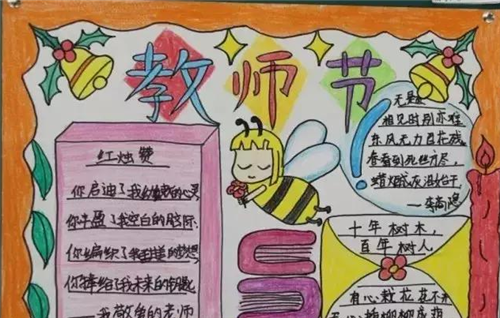 教师节
红烛赞
你启迪了我幼稚的心灵
你丰盈了我空白的脑际
你编织了我的梦想
你捧给了我未来的
我敬爱的老师
无题
相见时别亦难
东风无力百花残
春蚕到死丝方尽,
蜡烛成灰泪始干
—李商隐
十年树木,
百年树人
有心栽花花不开